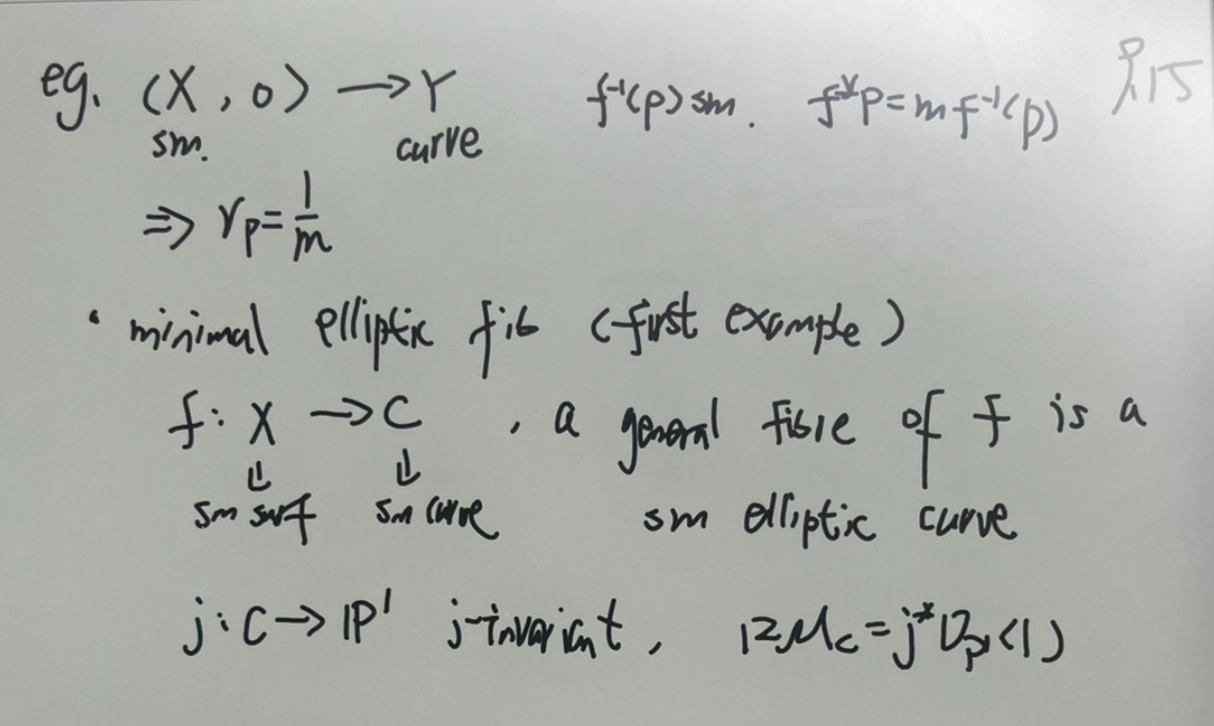 eg. (X, 0) → Y f⁻¹(p) sm. f*p = m f⁻¹(p)
sm. curve
⇒ γp = 1/m
· minimal elliptic fib (first example)
f: X → C , a general fibre of f is a
⇓ ⇓
sm surf sm curve sm elliptic curve
j: C → ℙ¹ j-invariant, 12Mc = j*Oℙ¹(1)